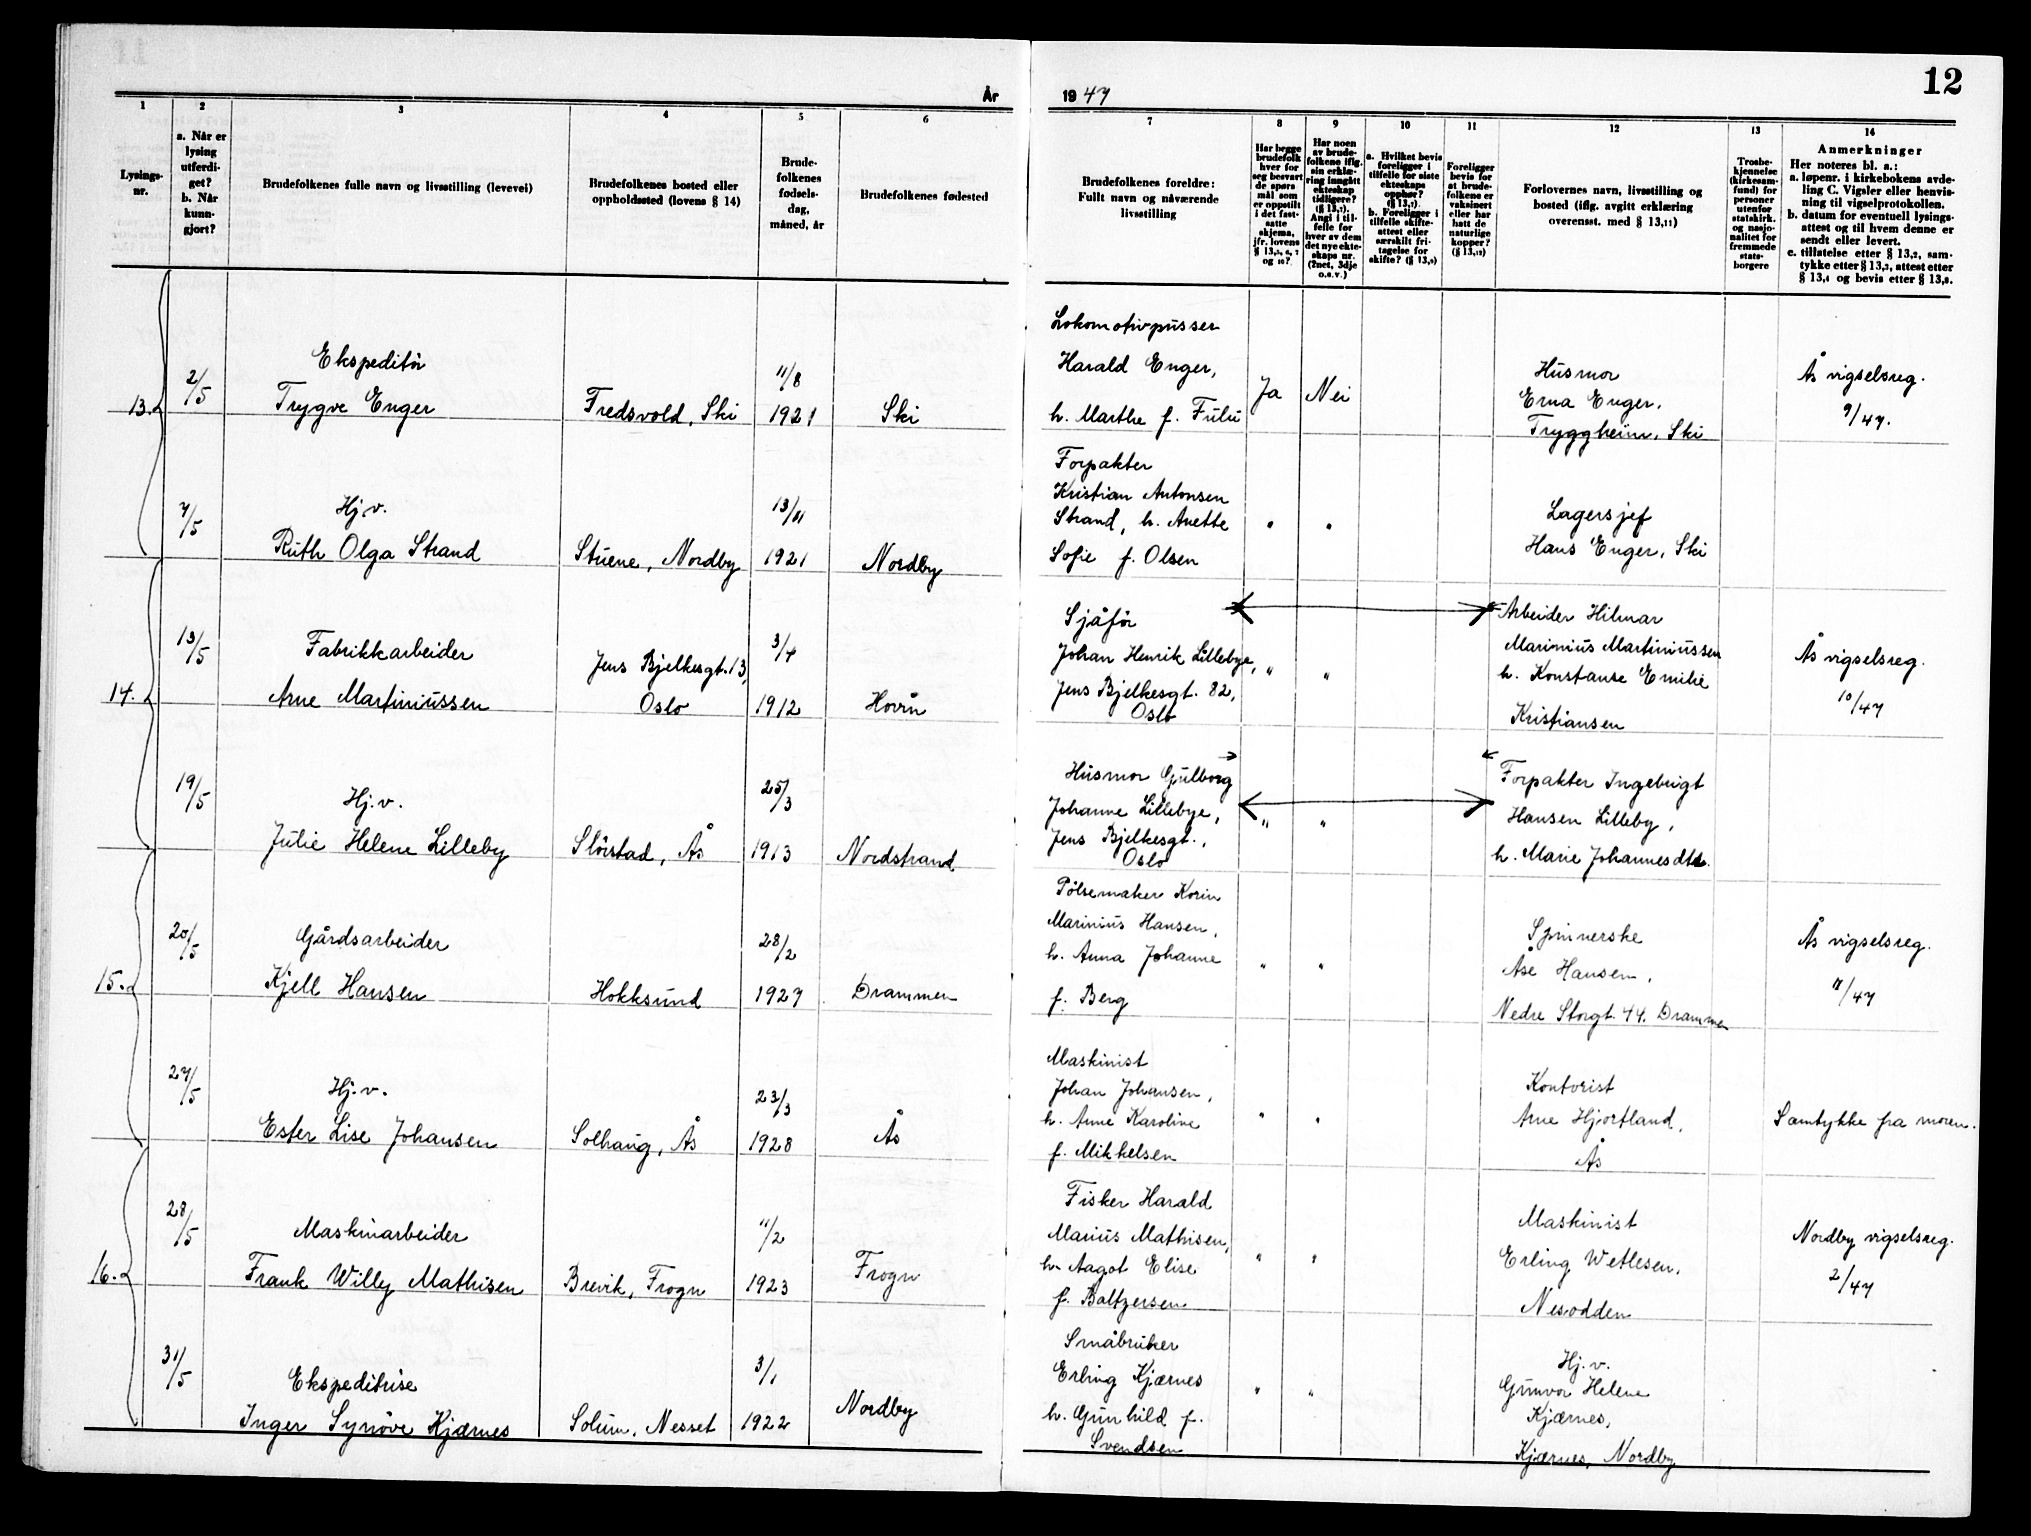 12
År
1947
1
2
3
4
5
6
7
8
9
10
11
12
13
14
Lysings-
nr.
a. Når er
lysing
utferdi-
get?
b. Når
kunn-
gjort?
Brudefolkenes fulle navn og livsstilling (levevei)
Brudefolkenes bosted eller
oppholdssted (lovens § 14)
Brude-
folkenes
fødsels-
dag,
måned, år
Brudefolkenes fødested
Brudefolkenes foreldre:
Fullt navn og nåværende
livsstilling
Har begge
brudefolk
hver for
seg besvart
de spørs
mål som
er oppstilt
i det fast-
satte
skjema,
jfr. lovens
§ 13,5, 6, 7
og 10?
Har noen
av brude-
folkene iflg.
sin erklæ-
ring inngått
ekteskap
tidligere?
(§ 13,7).
Angi i til-
felle for
hver av dem
det nye ekte-
skaps nr.
(2net, 3dje
o.s.v.)
a. Hvilket bevis
foreligger i
tilfelle for siste
ekteskaps
opphør?
(§ 13,7).
b. Foreligger i
tilfelle skifte-
attest eller
særskilt fri-
tagelse for
skifte? (§ 13,9)
Foreligger
bevis for
at brude-
folkene er
vaksinert
eller har
hatt de
naturlige
kopper?
(§ 13,12)
Forlovernes navn, livsstilling og
bosted (iflg. avgitt erklæring
overensst. med § 13,11)
Trosbe-
kjennelse
(kirkesam-
fund) for
personer
utenfor
statskirk.
og nasjo-
nalitet for
fremmede
stats-
borgere
Anmerkninger
Her noteres bl. a.:
a. løpenr. i kirkebokens avde-
ling C. Vigsler eller henvis-
ning til vigselprotokollen.
b. datum for eventuell lysings-
attest og til hvem denne er
sendt eller levert.
c. tillatelse etter § 13,2, sam-
tykke etter § 13,3, attest etter
§ 13,4 og bevis etter § 13,8.
13.
2/5
Ekspeditør
Trygve Enger
Fredsvold, Ski
11/8
1921
Ski
Lokomotivpusser
Harald Enger,
h. Marthe f. Fulu
Ja
Nei
Husmor
Erna Enger,
Tryggheim, Ski
Ås vigselsreg.
9/47.
7/5
Hj.v.
Ruth Olga Strand
Stuene, Nordby
13/11
1921
Nordby
Forpakter
Kristian Antonsen
Strand, h. Anette
Sofie f. Olsen
"
"
Lagersjef
Hans Enger, Ski
14.
13/5
Fabrikkarbeider
Arne Martiniussen
Jens Bjelkesgt. 13,
Oslo
3/4
1912
Hovin
Sjåfør
Johan Henrik Lillebye,
Jens Bjelkesgt. 82,
Oslo
"
"
Arbeider Hilmar
Marinius Martiniussen
h. Konstanse Emilie
Kristiansen
Ås vigselsreg.
10/47
19/5
Hj.v.
Julie Helene Lilleby
Slørstad, Ås
25/3
1913
Nordstrand
Husmor Gulborg
Johanne Lillebye,
Jens Bjelkesgt.,
Oslo
"
"
Forpakter Ingebrigt
Hansen Lilleby,
h. Marie Johannesdtr.
15.
20/5
Gårdsarbeider
Kjell Hansen
Hokksund
28/2
1927
Drammen
Pølsemaker Korin
Marinius Hansen,
h. Anna Johanne
f. Berg
"
"
Spinnerske
Åse Hansen,
Nedre Storgt. 44. Drammen
Ås vigselsreg.
7/47
27/5
Hj.v.
Ester Lise Johansen
Solhaug, Ås
23/3
1928
Ås
Maskinist
Johan Johansen,
h. Anne Karoline
f. Mikkelsen
"
"
Kontorist
Arne Hjortland,
Ås
Samtykke fra moren.
16.
28/5
Maskinarbeider
Frank Willy Mathisen
Brevik, Frogn
11/2
1923
Frogn
Fisker Harald
Marius Mathisen,
h. Aagot Elise
f. Baltzersen
"
"
Maskinist
Erling Wetlesen,
Nesodden
Nordby vigselsreg.
2/47
31/5
Ekspeditrise
Inger Synøve Kjærnes
Solum, Nesset
3/1
1922
Nordby
Småbruker
Erling Kjærnes
h. Gunhild f.
Svendsen
"
"
Hj.v.
Gunvor Helene
Kjærnes,
Kjærnes, Nordby